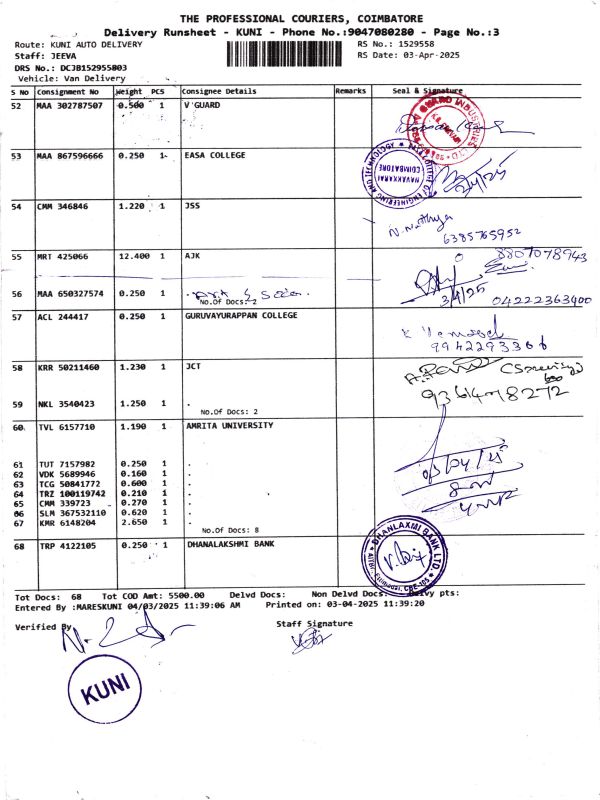 THE PROFESSIONAL COURIERS, COIMBATORE
Delivery Runsheet - KUNI - Phone No.:9047080280 - Page No.:3
Route: KUNI AUTO DELIVERY RS No.: 1529558
Staff: JEEVA RS Date: 03-Apr-2025
DRS No.: DCJB152955803
Vehicle: Van Delivery
S No Consignment No Weight PCS Consignee Details Remarks Seal & Signature
52 MAA 302787507 0.500 1 V GUARD
53 MAA 867596666 0.250 1 EASA COLLEGE
NAVAKKARAI COIMBATORE
3/4/25
54 CMM 346846 1.220 1 JSS
N. Nithya
6385765952
55 MRT 425066 12.400 1 AJK
8807078943
56 MAA 650327574 0.250 1 .
No.Of Docs: 2
3/4/25 04222363400
57 ACL 244417 0.250 1 GURUVAYURAPPAN COLLEGE
9942293366
58 KRR 50211460 1.230 1 JCT
9361478272
59 NKL 3540423 1.250 1 .
No.Of Docs: 2
60 TVL 6157710 1.190 1 AMRITA UNIVERSITY
03/04/25
61 TUT 7157982 0.250 1 .
62 VDK 5689946 0.160 1 .
63 TCG 50841772 0.600 1 .
64 TRZ 100119742 0.210 1 .
65 CMM 339723 0.270 1 .
66 SLM 367532110 0.620 1 .
67 KMR 6148204 2.650 1 .
No.Of Docs: 8
68 TRP 4122105 0.250 1 DHANALAKSHMI BANK
DHANLAXMI BANK LTD.
Tot Docs: 68 Tot COD Amt: 5500.00 Delvd Docs: Non Delvd Docs: Delvy pts:
Entered By :MARESKUNI 04/03/2025 11:39:06 AM Printed on: 03-04-2025 11:39:20
Verified By Staff Signature
KUNI